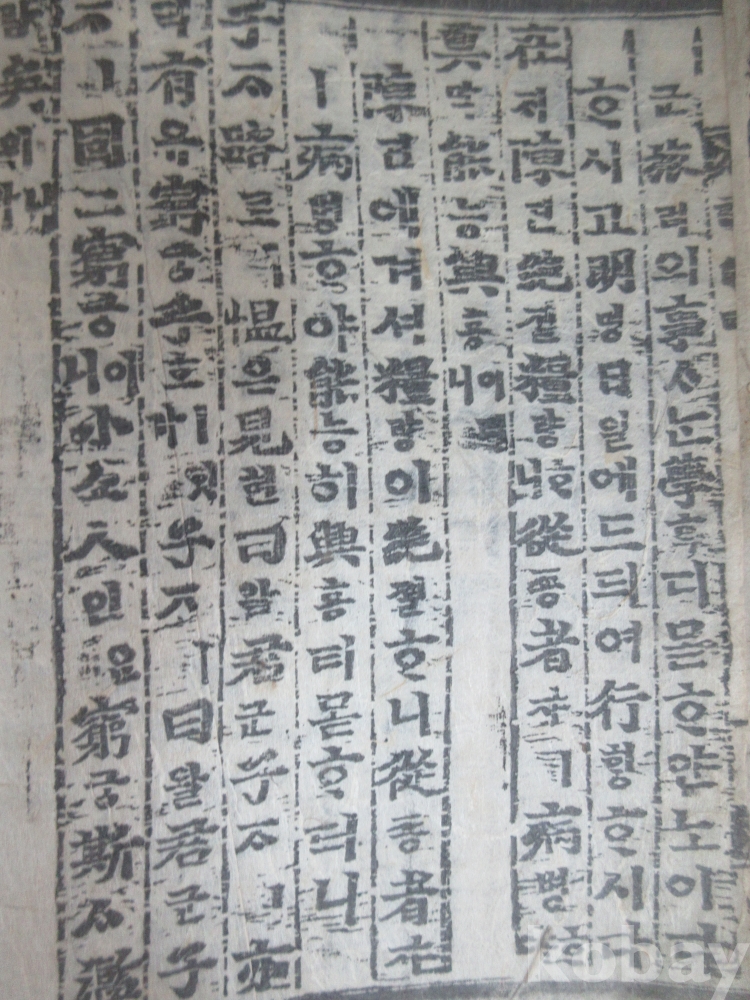 군旅려의事ᄉᆞᄂᆞᆫ學ᄒᆞᆨ디몯ᄒᆞ얀노이다
ᄒᆞ시고明명日일에드듸여行ᄒᆡᆼᄒᆞ시다
在ᄌᆡ陳딘絶졀糧량ᄒᆞ니從죵者쟈ㅣ病병ᄒᆞ야
莫막能능興흥이러니
陳딘에겨셔糧량이絶졀ᄒᆞ니從죵者쟈
ㅣ病병ᄒᆞ야能능히興흥티몯ᄒᆞ더니
子ᄌᆞ路로ㅣ慍온見현曰왈君군子ᄌᆞㅣ亦
역有유窮궁乎호ㅣ잇가子ᄌᆞㅣ曰왈君군子
ᄌᆞㅣ固고窮궁이니小쇼人인은窮궁斯ᄉᆞ濫
矣의니라
kobay